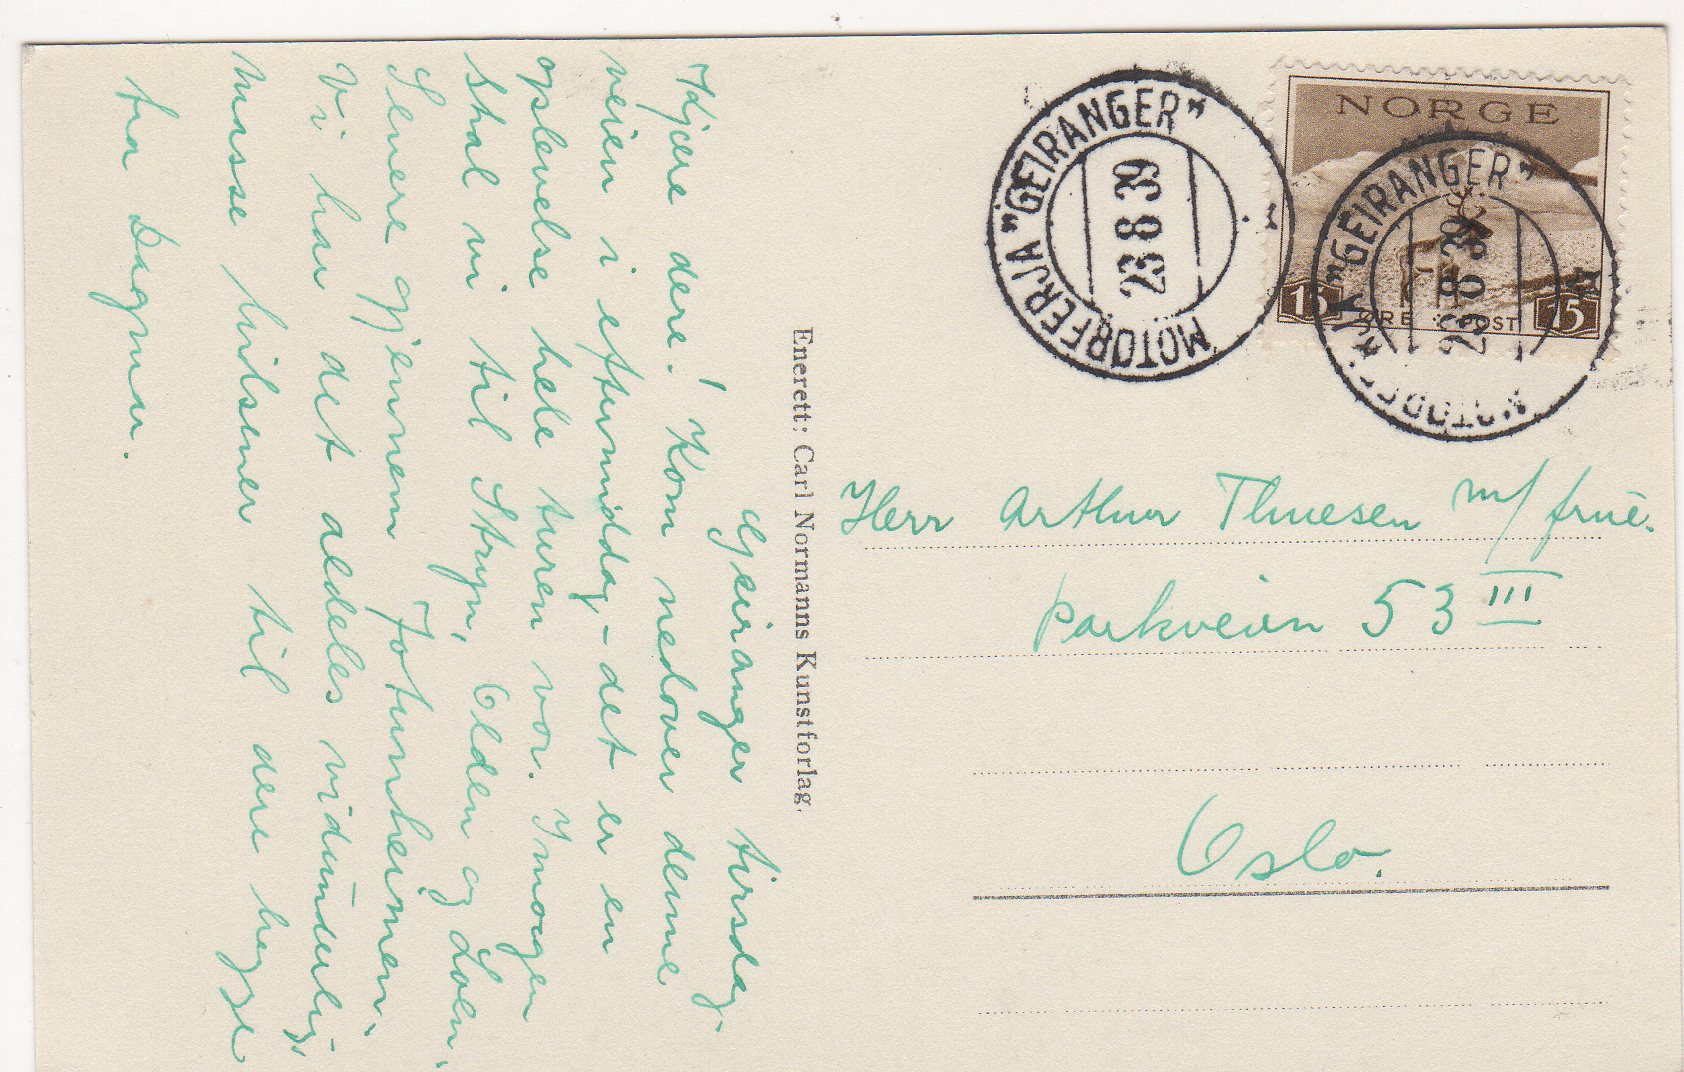 Geiranger tirsdag.
Kjære dere! Kom nedover denne
veien i eftermiddag – det er en
oplevelse hele turen vor. Imorgen
skal vi til Stryn, Olden og Loen,
Senere gjennem Jotunheimen.
Vi har det aldeles vidunderlig,
Masse hilsener til dere begge
fra Dagmar.
Enerett: Carl Normanns Kunstforlag.
MOTORFERJA "GEIRANGER"
23 8 39
NORGE
15 ØRE POST 15
"GEIRANGER"
23 8 39
Herr Arthur Thuesen m/ frue.
Parkveien 53 III
Oslo.